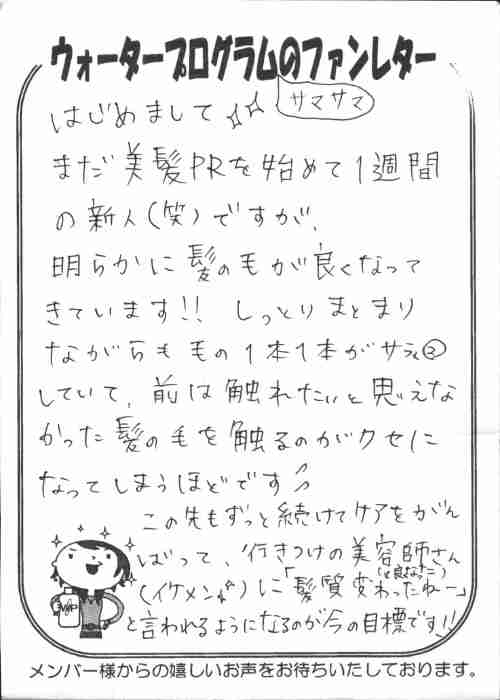 ウォータープログラムのファンレター
サマサマ
はじめまして☆☆
まだ美髪PRを始めて1週間
の新人(笑)ですが、
明らかに髪の毛が良くなって
きています!! しっとりまとまり
ながらも毛の1本1本がサラ②
していて、前は触れたいと思えな
かった髪の毛を触るのがクセに
なってしまうほどです♪
この先もずっと続けてケアをがん
ばって、行きつけの美容師さん
(イケメン)に「髪質変わったねー」
(と良なった)
と言われるようになるのが今の目標です!!
WP
メンバー様からの嬉しいお声をお待ちいたしております。